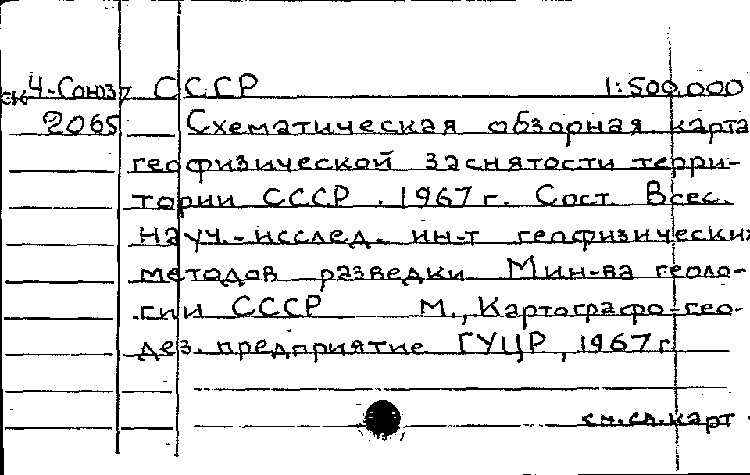 Ч-Союз СССР 1:500.000
2065 Схематическая обзорная карта
геофизической заснятости терри-
тории СССР. 1967 г. Сост. Всес.
науч.-исслед. ин-т геофизических
методов разведки Мин-ва геоло-
гии СССР М., Картографо-гео-
дез. предприятие ГУЦР, 1967 г
см. сл. карт